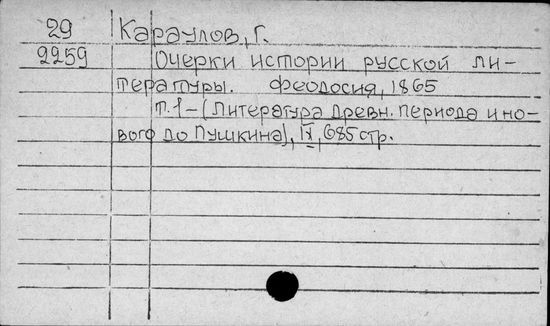 29 Караулов, Г.
2259 Очерки истории русской ли-
тературы. Феодосия, 1865
т.1-(Литература древн. периода и но-
вого до Пушкина), IX, 685 стр.